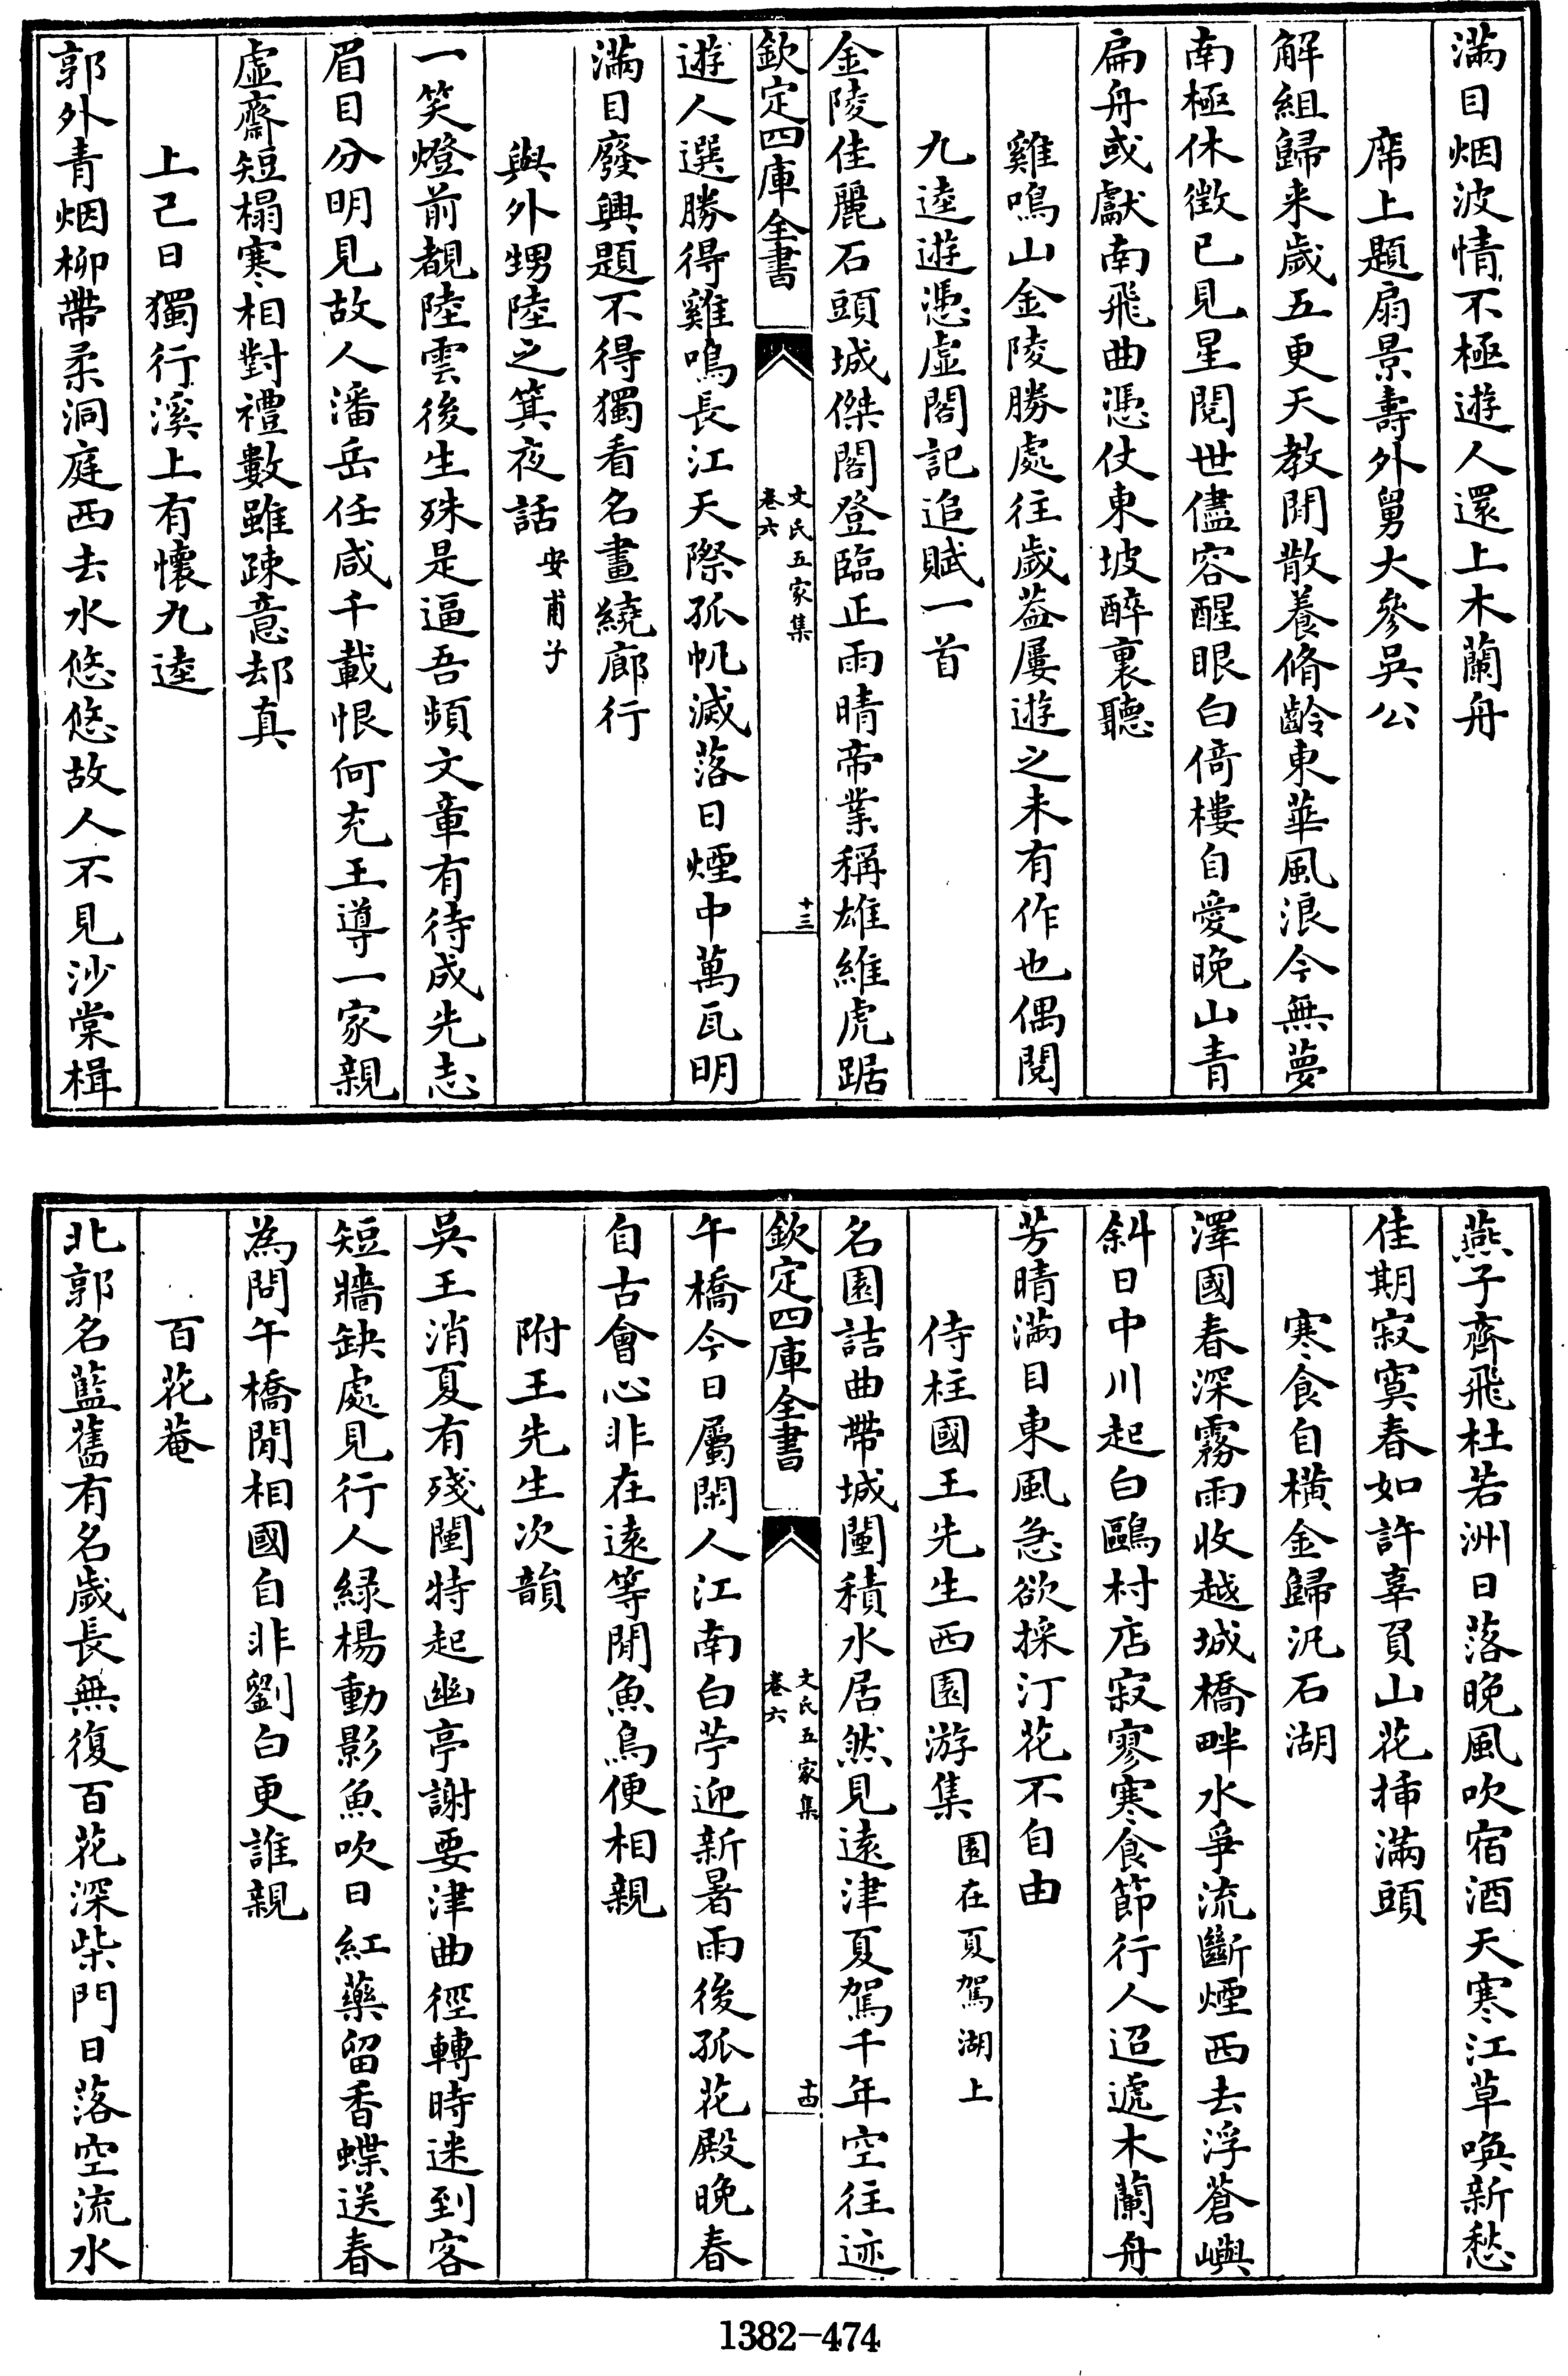 滿目烟波情不極遊人還上木蘭舟
席上題扇景壽外舅大參吳公
解組歸来歲五更天教閒散養脩齡東華風浪今無夢
南極休徵已見星閱世儘容醒眼白倚樓自愛晚山青
扁舟或獻南飛曲憑仗東坡醉裏聽
雞鳴山金陵勝處往歲葢屢遊之未有作也偶閱
九逵遊憑虛閣記追賦一首
金陵佳麗石頭城傑閣登臨正雨晴帝業稱雄維虎踞
欽定四庫全書
文氏五家集
卷六
十三
遊人選勝得雞鳴長江天際孤帆滅落日煙中萬瓦明
滿目廢興題不得獨看名畫繞廊行
與外甥陸之箕夜話安甫子
一笑燈前覩陸雲後生殊是逼吾頻文章有待成先志
眉目分明見故人潘岳任咸千載恨何充王導一家親
虛齋短榻寒相對禮數雖疎意却真
上己日獨行溪上有懷九逵
郭外青烟柳帶柔洞庭西去水悠悠故人不見沙棠楫
燕子齊飛杜若洲日落晚風吹宿酒天寒江草喚新愁
佳期寂寞春如許辜負山花插滿頭
寒食自橫金歸汎石湖
澤國春深霧雨收越城橋畔水爭流斷煙西去浮蒼嶼
斜日中川起白鷗村店寂寥寒食節行人迢遞木蘭舟
芳晴滿目東風急欲採汀花不自由
侍柱國王先生西園游集園在夏駕湖上
名園詰曲帶城闉積水居然見遠津夏駕千年空往迹
欽定四庫全書
文氏五家集
卷六
十四
午橋今日屬閑人江南白苧迎新暑雨後孤花殿晚春
自古會心非在遠等閒魚鳥便相親
附王先生次韻
吳王消夏有殘闉特起幽亭謝要津曲徑轉時迷到客
短牆缺處見行人緑楊動影魚吹日紅藥留香蝶送春
為問午橋閒相國自非劉白更誰親
百花菴
北郭名藍舊有名歲長無復百花深柴門日落空流水
1382-474